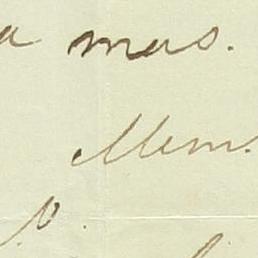 a mas.
Mem.